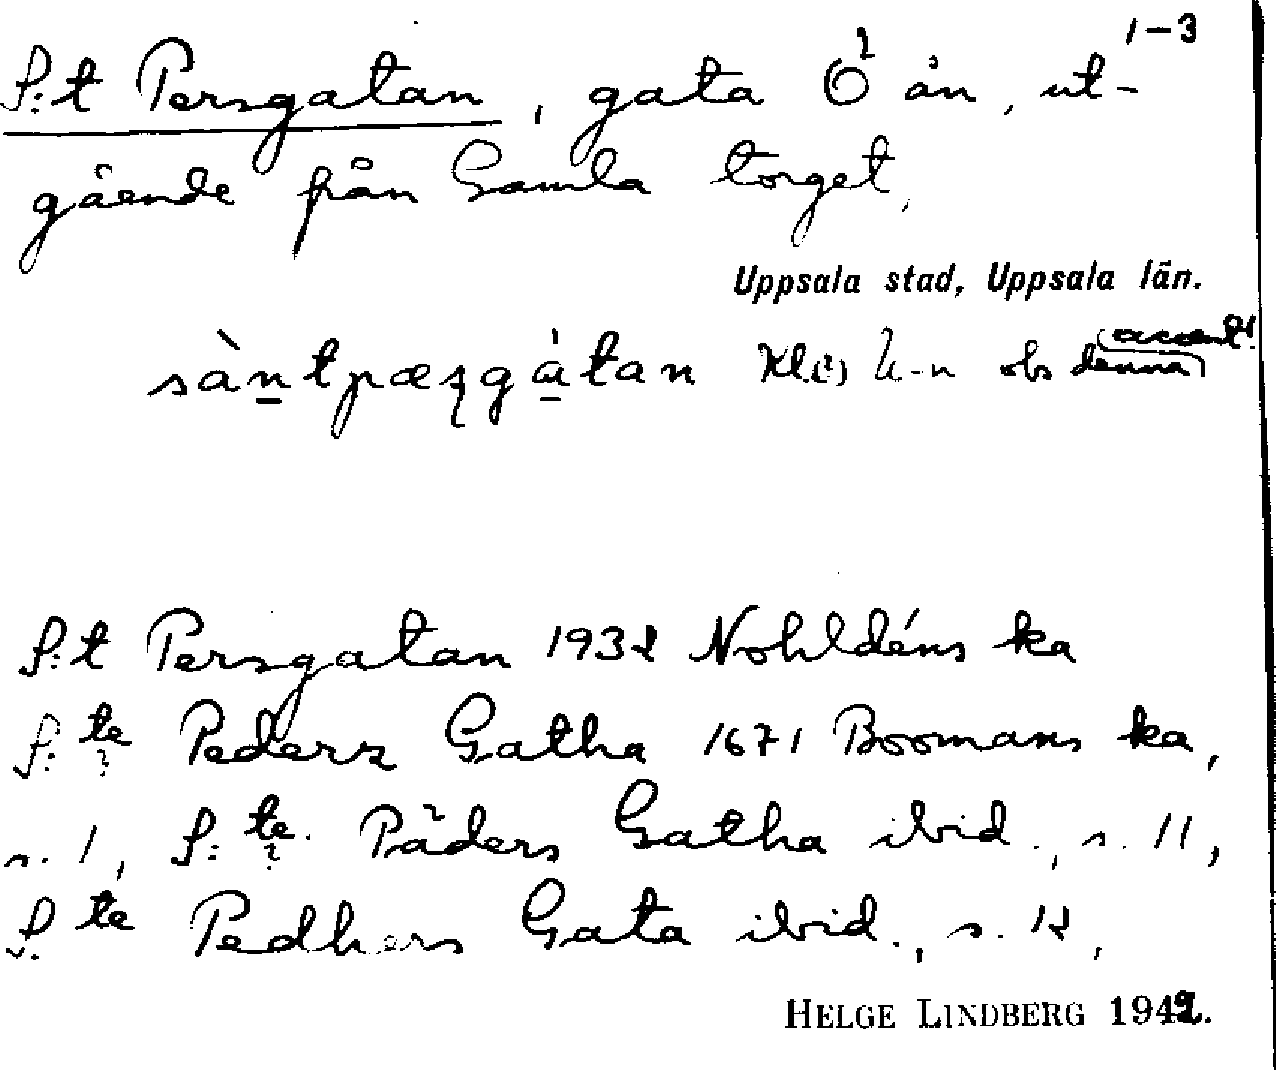 1-3
S:t Persgatan, gata Ö ån, ut-
gående från Gamla torget.
Uppsala stad, Uppsala län.
sàntpæʂgàtan obs denna accent!
S:t Persgatan 1932 Nohldéns ka
S:te Peders Gatha 1671 Boomans ka,
s. 1, S:te Päders Gatha ibid., s. 11,
S:te Pedhers Gata ibid., s. 12,
HELGE LINDBERG 1942.